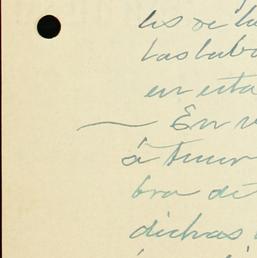 les de la
las labo
en esta
— En v
á tener
bra de
dichas